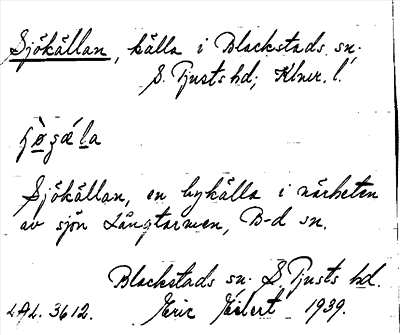 Sjökällan, källa i Blackstads sn.
S. Tjusts hd; Klmr. l.
Sjökällan, en bykälla i närheten
av sjön Långtarmen, B-d sn.
Blackstads sn. S. Tjusts hd.
LAL. 3612. Eric Eilert 1939.